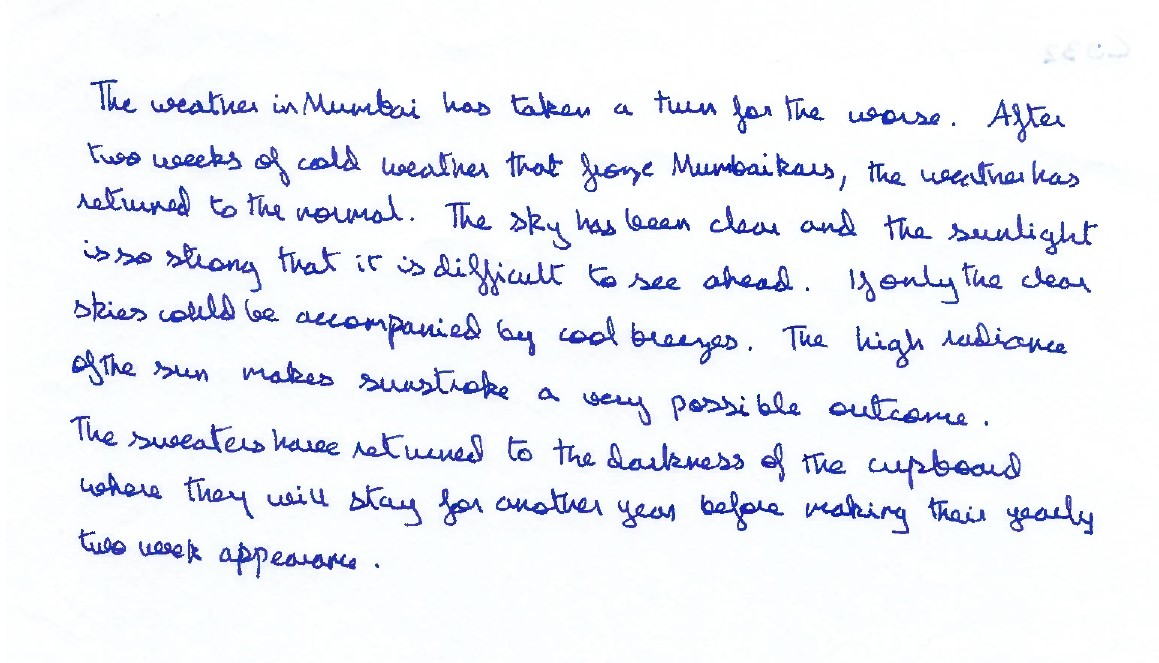 The weather in Mumbai has taken a turn for the worse. After
two weeks of cold weather that froze Mumbaikars, the weather has
returned to the normal. The sky has been clear and the sunlight
is so strong that it is difficult to see ahead. If only the clear
skies could be accompanied by cool breezes. The high radiance
of the sun makes sunstroke a very possible outcome.
The sweaters have returned to the darkness of the cupboard
where they will stay for another year before making their yearly
two week appearance.